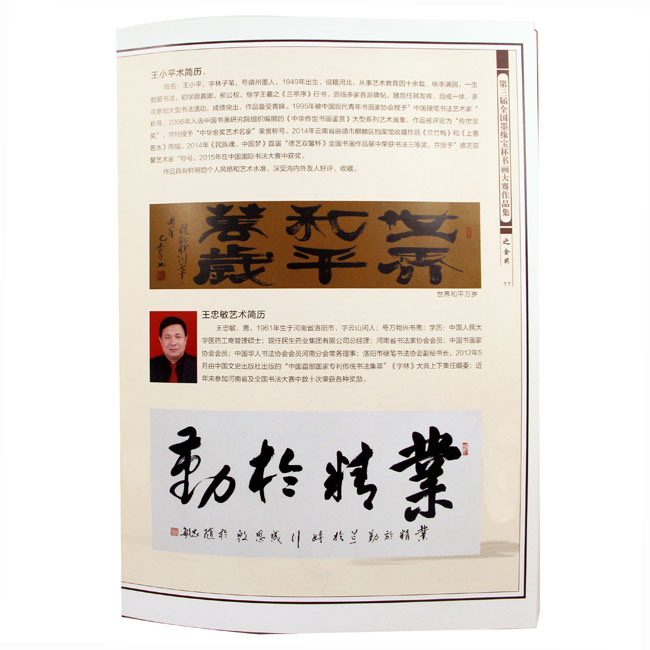 王小平术简历、
姓名：王小平，字林子笔，号靖州墨人，1949年出生，祖籍河北，从事艺术教育四十余载，桃李满园，一生
酷爱书法，初学颜真卿、柳公权，继学王羲之《兰亭序》行书，后临多家各派碑帖，随后任其发挥，自成一体，多
次参加大型书法活动，成绩突出，作品备受青睐。1995年被中国现代青年书画家协会授予“中国硬笔书法艺术家”
称号。2006年入选中国书画研究院组织编撰的《中华传世书画鉴赏》大型系列艺术画集，作品被评定为“传世金
奖”，并特授予“中华金奖艺术名家”荣誉称号。2014年云南省曲靖市麒麟区档案馆收藏作品《兰竹梅》和《上善
若水》两幅。2014年《民族魂，中国梦》首届“德艺双馨杯”全国书画作品展中荣获书法三等奖，并授予“德艺双
馨艺术家”称号。2015年在中国国际书法大赛中获奖。
作品具有鲜明的个人风格和艺术水准，深受海内外友人好评、收藏。
世界和平萬歲
世界和平万岁
王忠敏艺术简历
王忠敏，男，1961年生于河南省洛阳市，字云山闲人；号万物兴书斋；学历：中国人民大
学医药工商管理硕士；现任民生药业集团有限公司总经理；河南省书法家协会会员；中国书画家
协会会员；中国华人书法协会会员河南分会常务理事；洛阳市硬笔书法协会副秘书长。2012年5
月由中国文史出版社出版的“中国首部国家专利传统书法集萃”《字林》大典上下集任编委；近
年来参加河南省及全国书法大赛中数十次荣获各种奖励。
業精於勤
業精於勤
第三届全国墨缘宝杯书画大赛作品集
之金奖
77